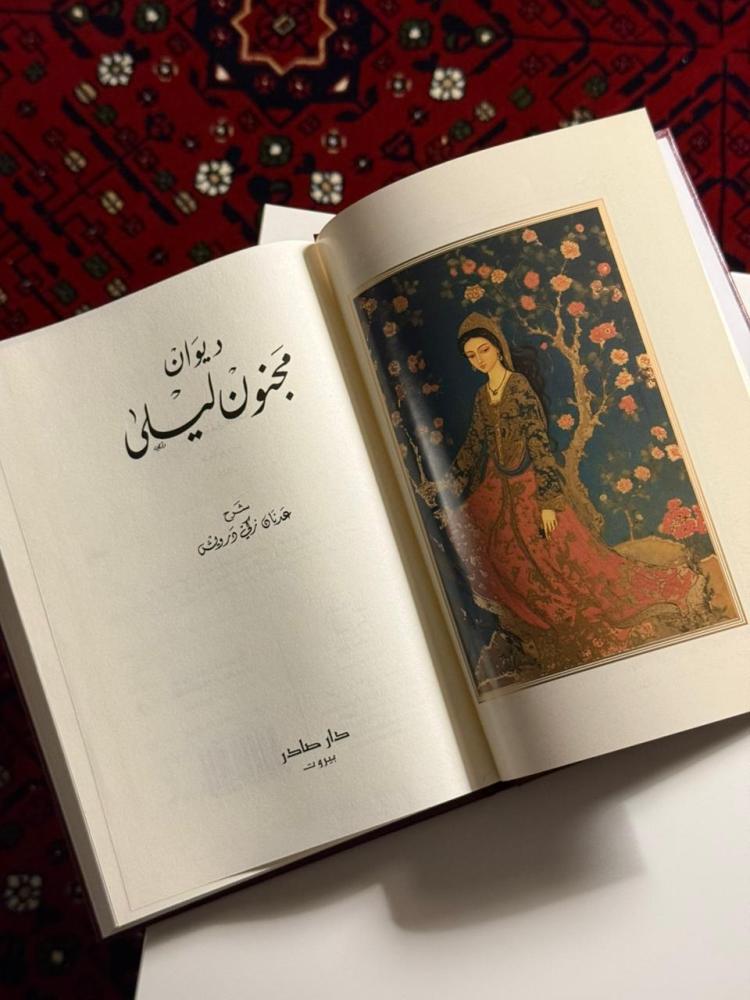 ديوَان
مَجنون ليلى
شَرح
عَدنَان زكي دَرويش
دار صادر
بيروت